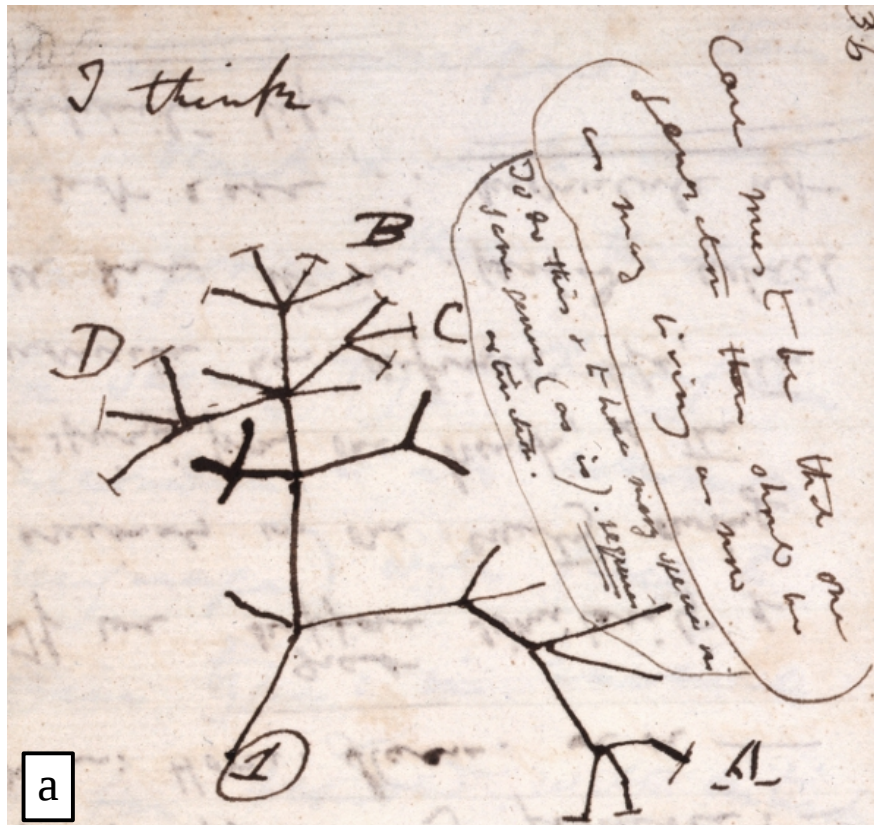 36
I think
Case must be that one
generation then should be
as many living as now
To do this & to have many species in
same genus (as is). requires
extinction.
B
C
D
A
1
a